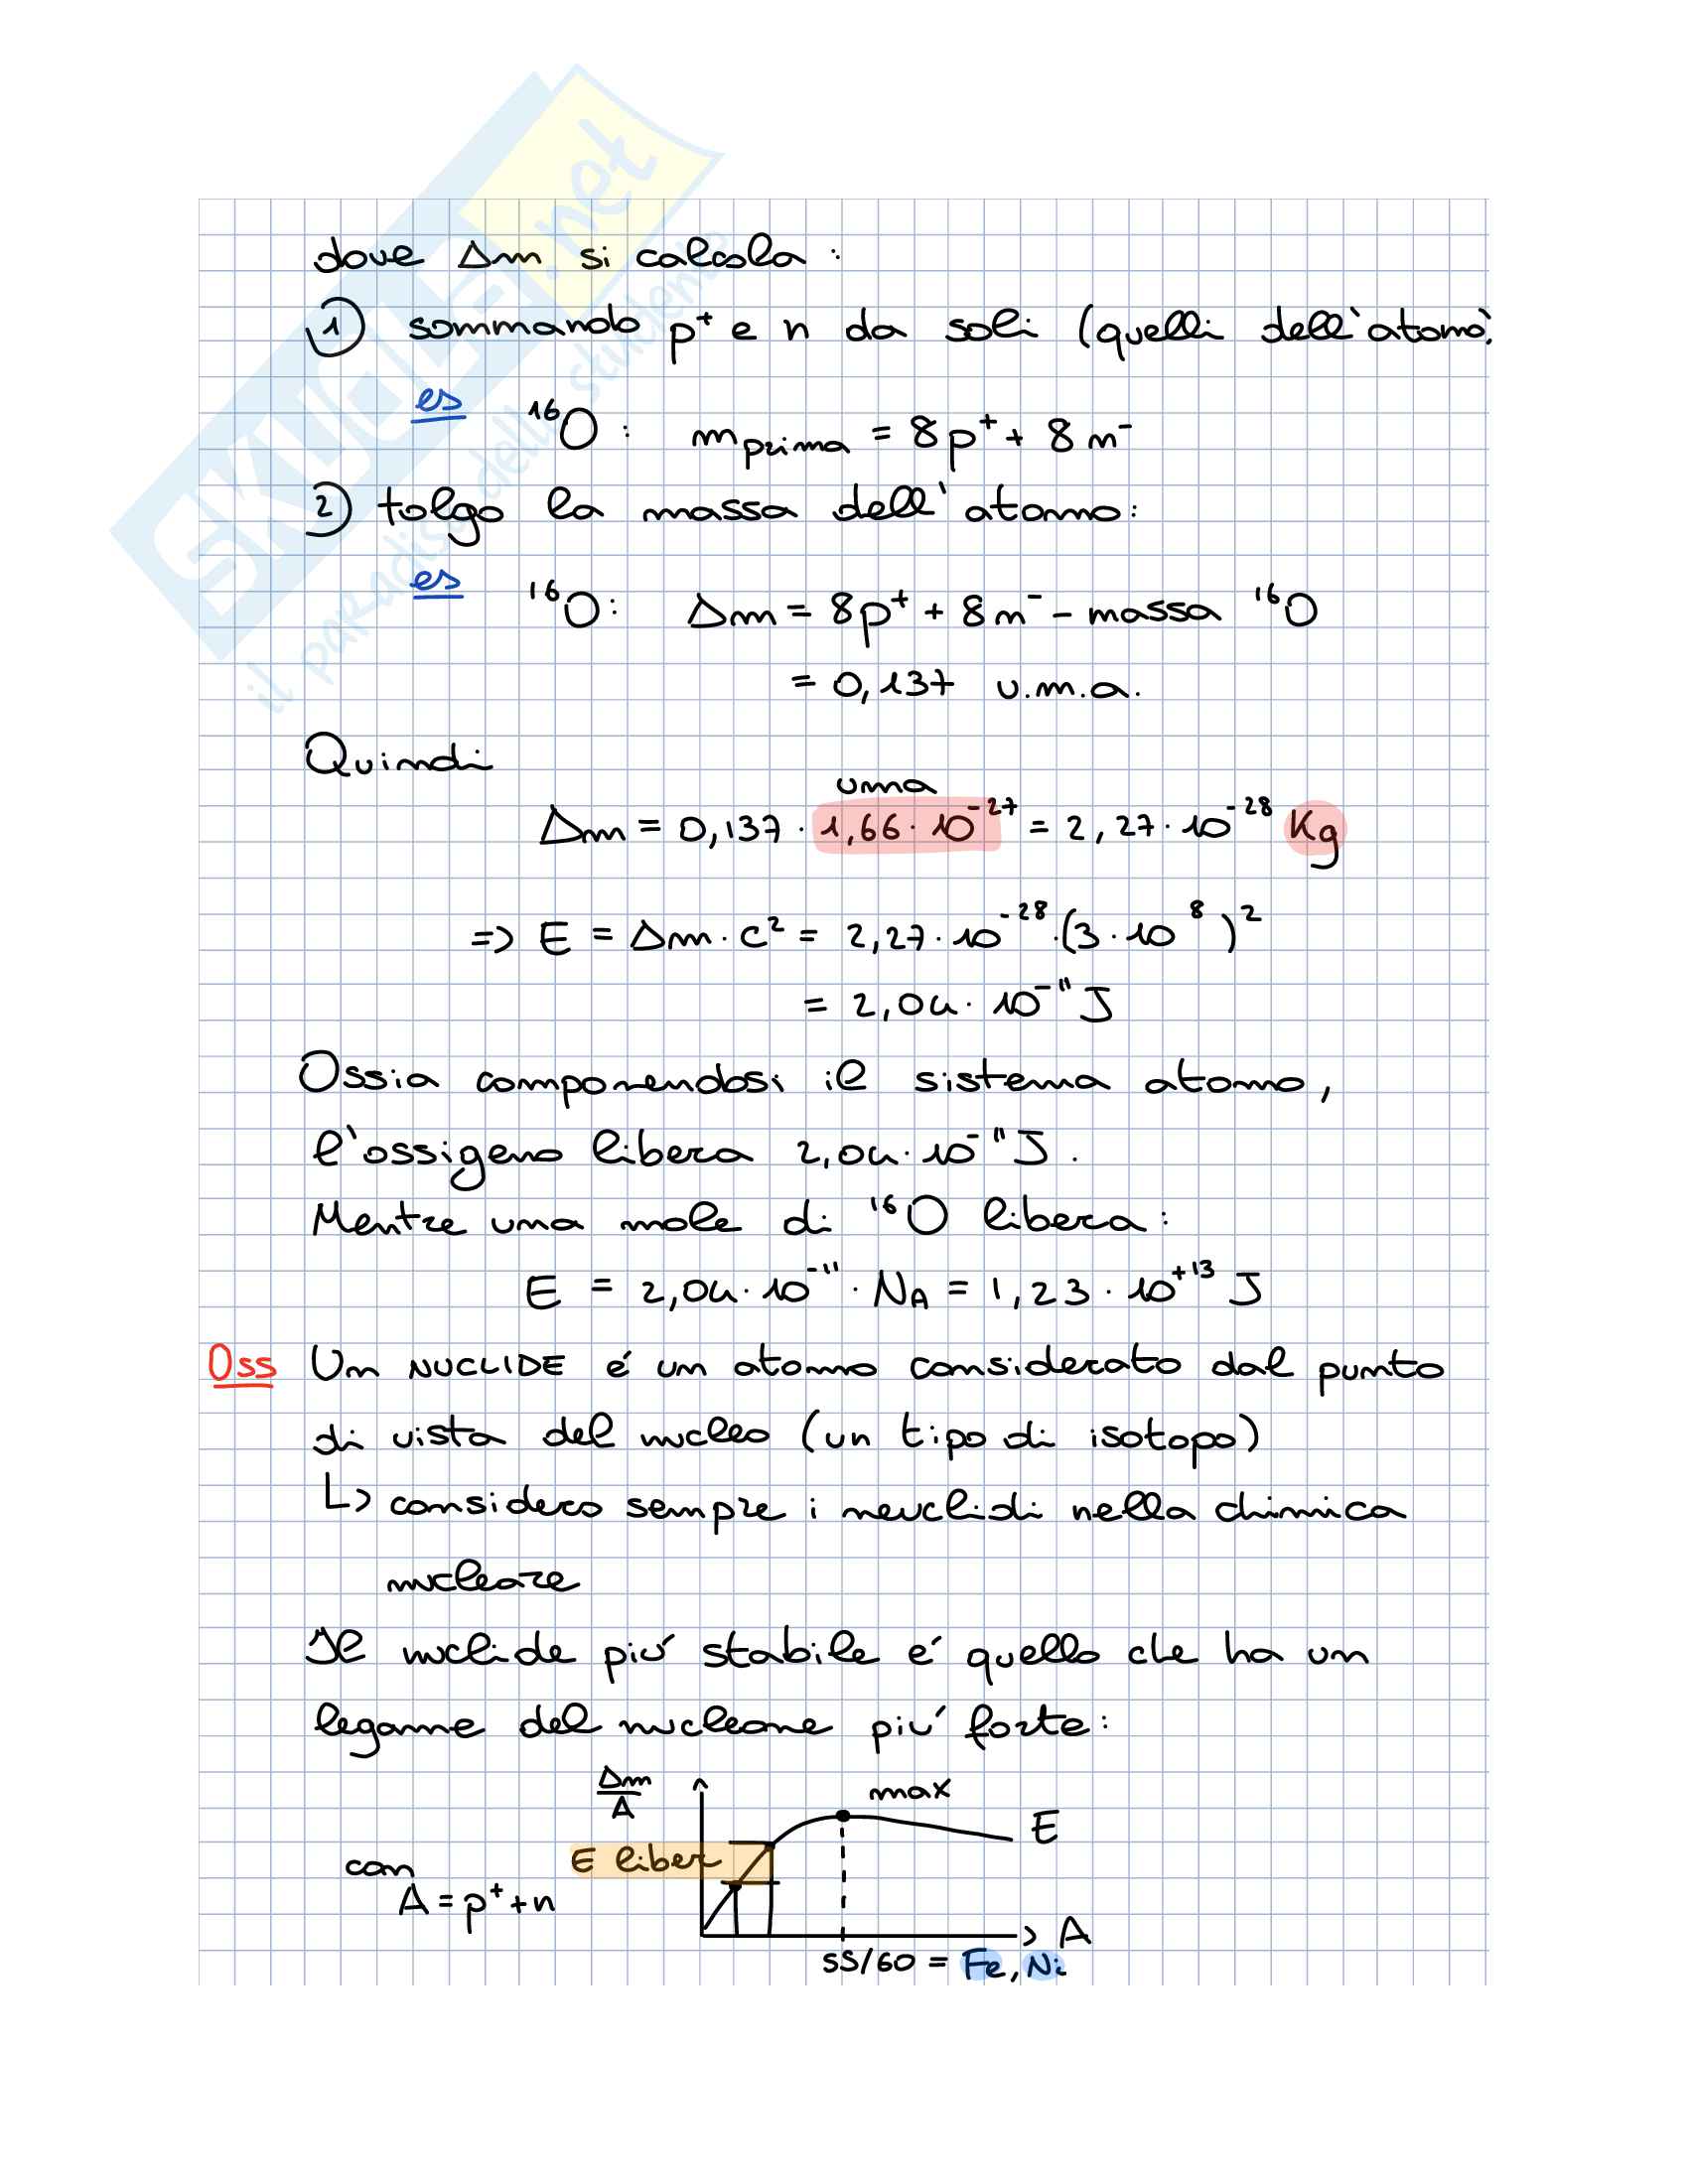 SKUOLA.net
il paradiso dello studente
dove Δm si calcola:
① sommando p⁺ e n da soli (quelli dell'atomo):
es ¹⁶O: m prima = 8p⁺ + 8n⁻
② tolgo la massa dell'atomo:
es ¹⁶O: Δm = 8p⁺ + 8n⁻ - massa ¹⁶O
= 0,137 u.m.a.
Quindi
uma
Δm = 0,137 · 1,66 · 10⁻²⁷ = 2,27 · 10⁻²⁸ Kg
=> E = Δm · c² = 2,27 · 10⁻²⁸ · (3 · 10⁸)²
= 2,04 · 10⁻¹¹ J
Ossia componendosi il sistema atomo,
l'ossigeno libera 2,04 · 10⁻¹¹ J.
Mentre una mole di ¹⁶O libera:
E = 2,04 · 10⁻¹¹ · NA = 1,23 · 10⁺¹³ J
Oss Un NUCLIDE é un atomo considerato dal punto
di vista del nucleo (un tipo di isotopo)
↳ considero sempre i neuclidi nella chimica
nucleare
Il nuclide piú stabile é quello che ha un
legame del nucleone piú forte:
Δm/A max
E
E liber
con
A = p⁺ + n
A
55/60 = Fe, Ni